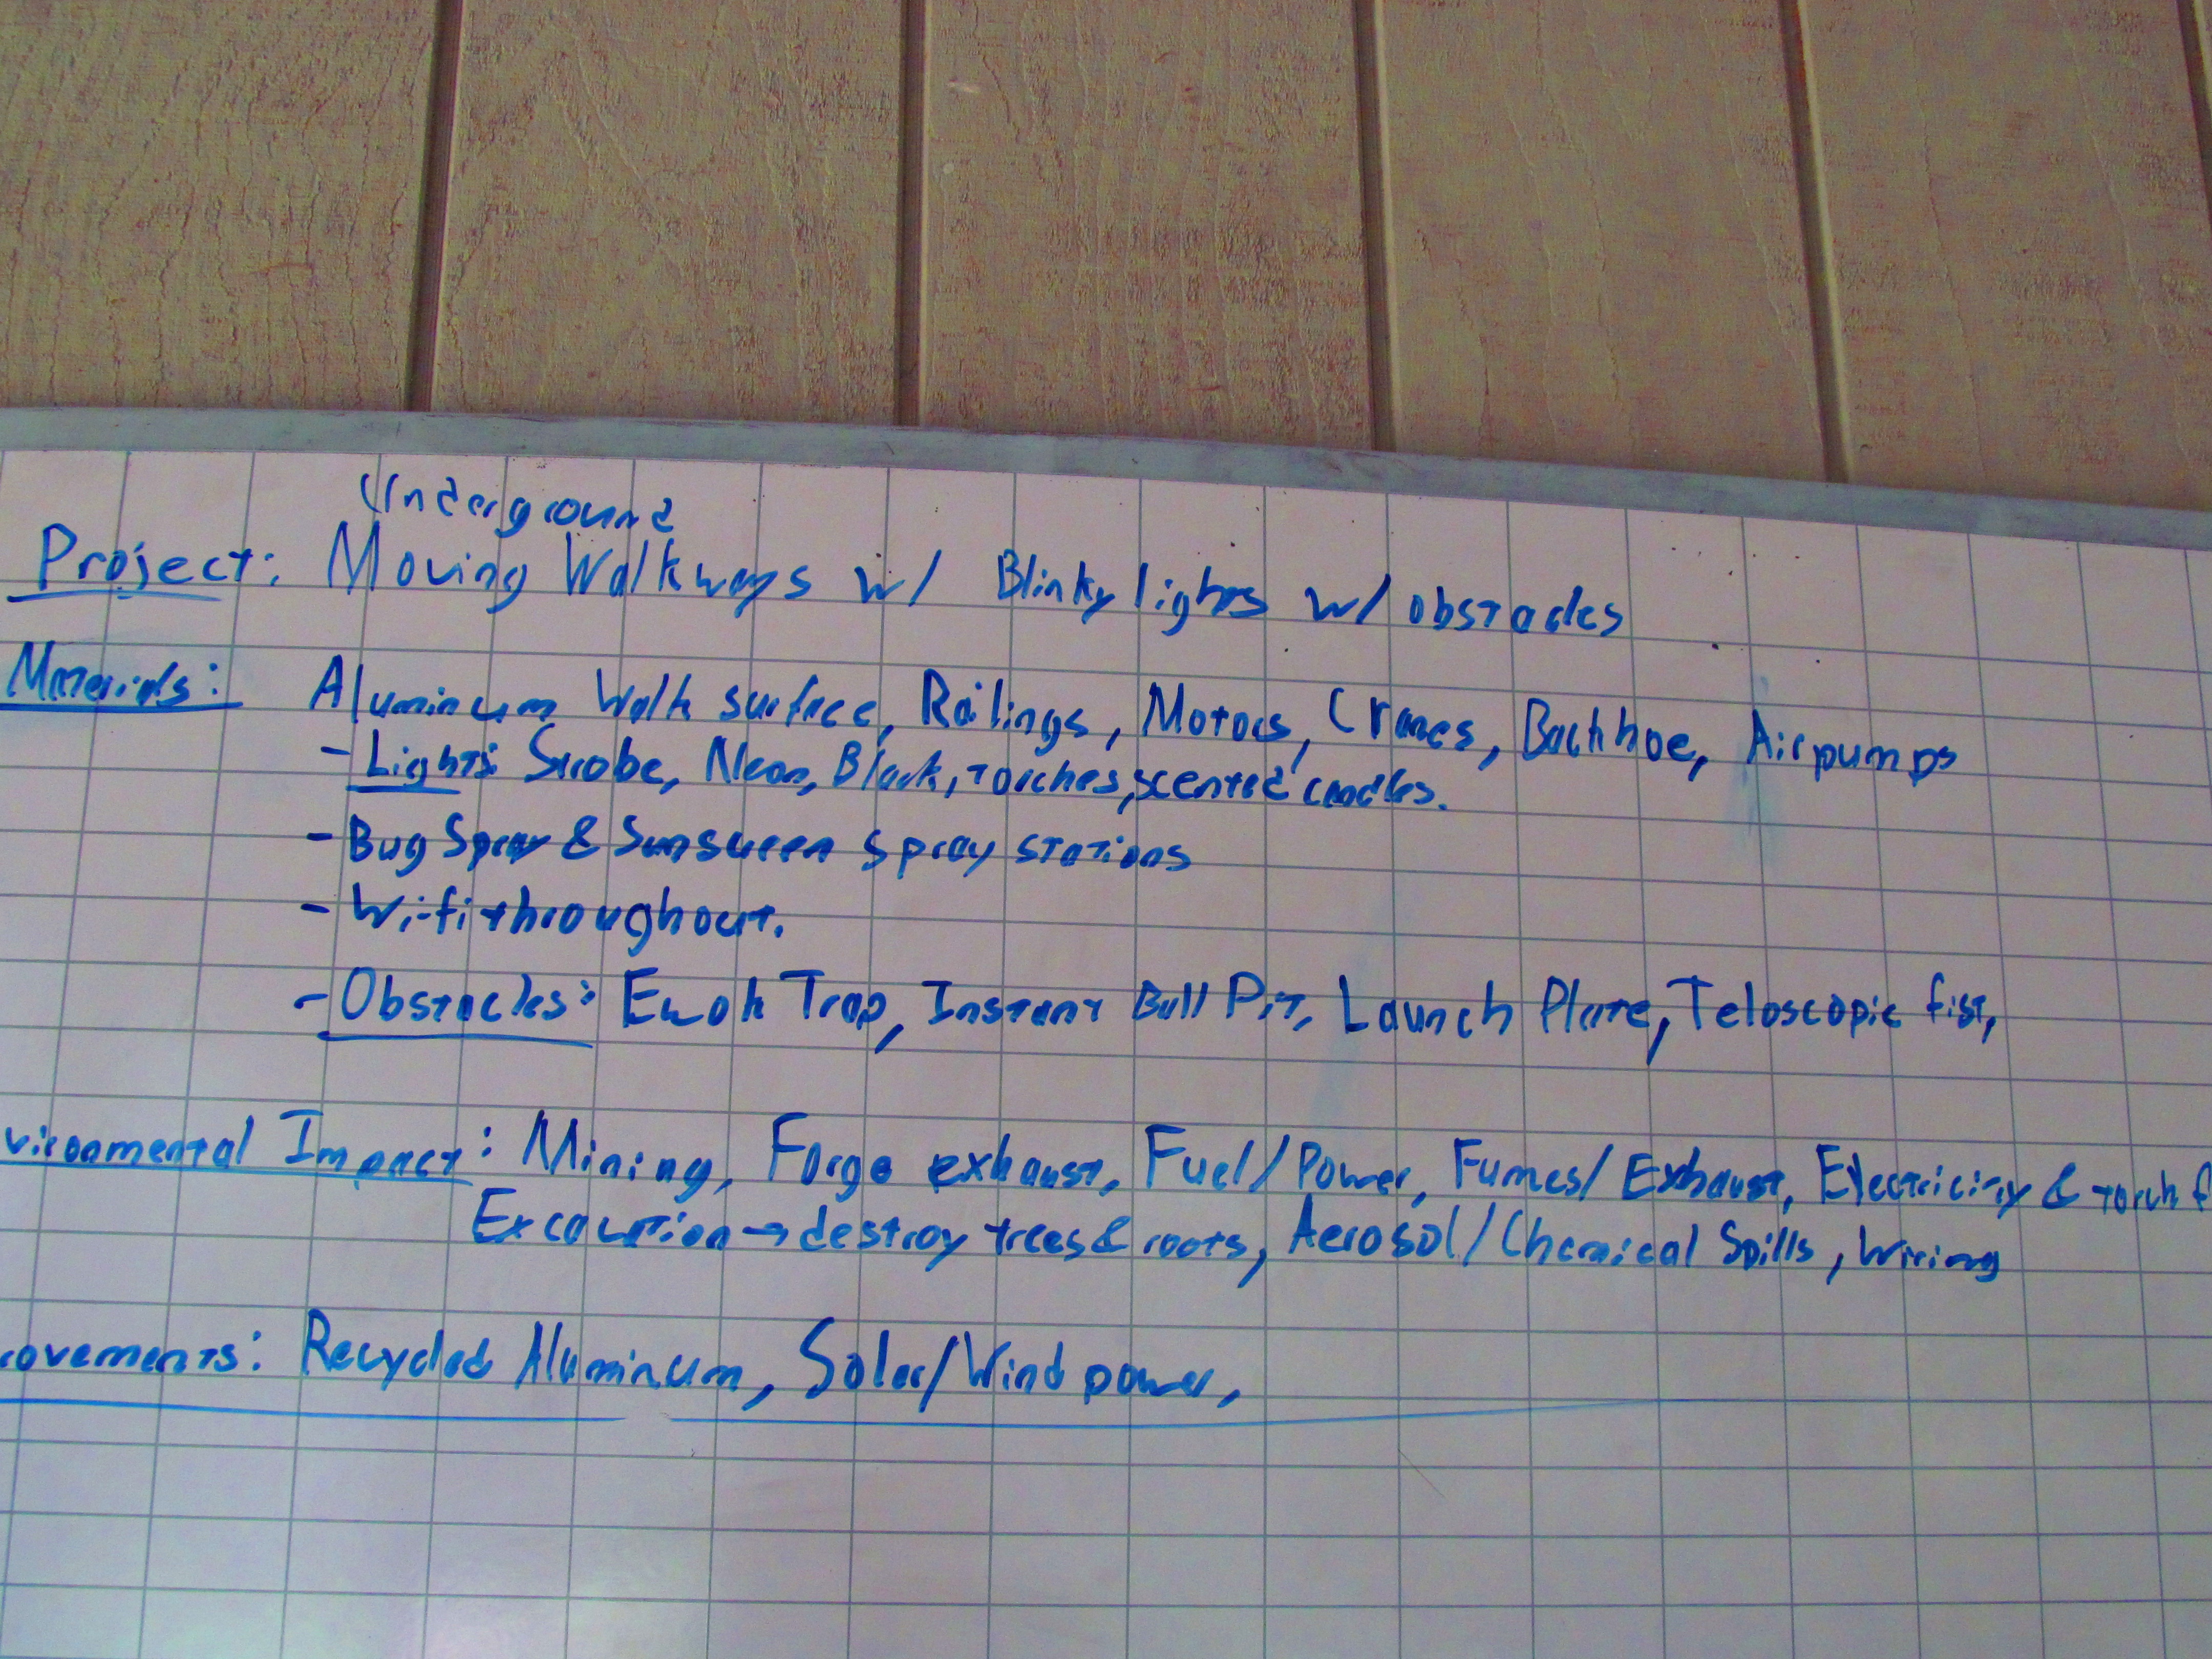 Underground
Project: Moving Walkways w/ Blinky lights w/ obstacles
Materials: Aluminum Walk surface, Railings, Motors, Cranes, Backhoe, Airpumps
- Lights: Strobe, Neon, Black, torches, scented candles.
- Bug Spray & Sunscreen Spray stations
- Wi-fi throughout.
- Obstacles: Ewok Trap, Instant Ball Pit, Launch Plate, Teloscopic fist,
vironmental Impact: Mining, Forge exhaust, Fuel/Power, Fumes/Exhaust, Electricity & torch f
Excavation → destroy trees & roots, Aerosol/Chemical Spills, Wiring
rovements: Recycled Aluminum, Solar/Wind power,